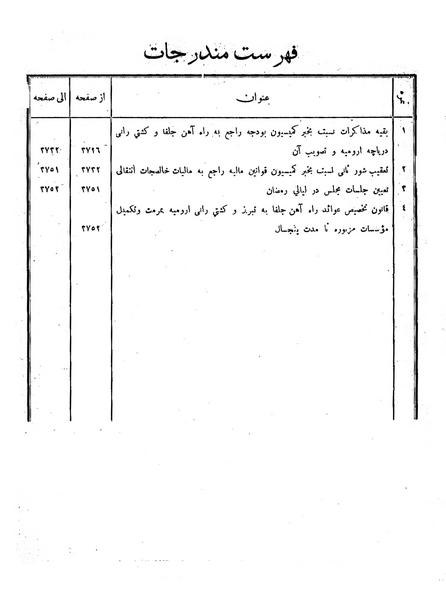 فهرست مندرجات
عنوان از صفحه الی صفحه
۱ بقیه مذاکرات نسبت بخبر کمیسیون بودجه راجع به راه آهن جلفا و کشتی رانی
دریاچه ارومیه و تصویب آن ۲۷۱۶ ۲۷۳۲
۲ تعقیب شور ثانی نسبت بخبر کمیسیون قوانین مالیه راجع به مالیات خالصجات انتقالی ۲۷۳۲ ۲۷۵۱
۳ تعیین جلسات مجلس در لیالی رمضان ۲۷۵۱ ۲۷۵۲
۴ قانون تخصیص عوائد راه آهن جلفا به تبریز و کشتی رانی ارومیه بمرمت وتکمیل
مؤسسات مزبوره تا مدت پنجسال ۲۷۵۲